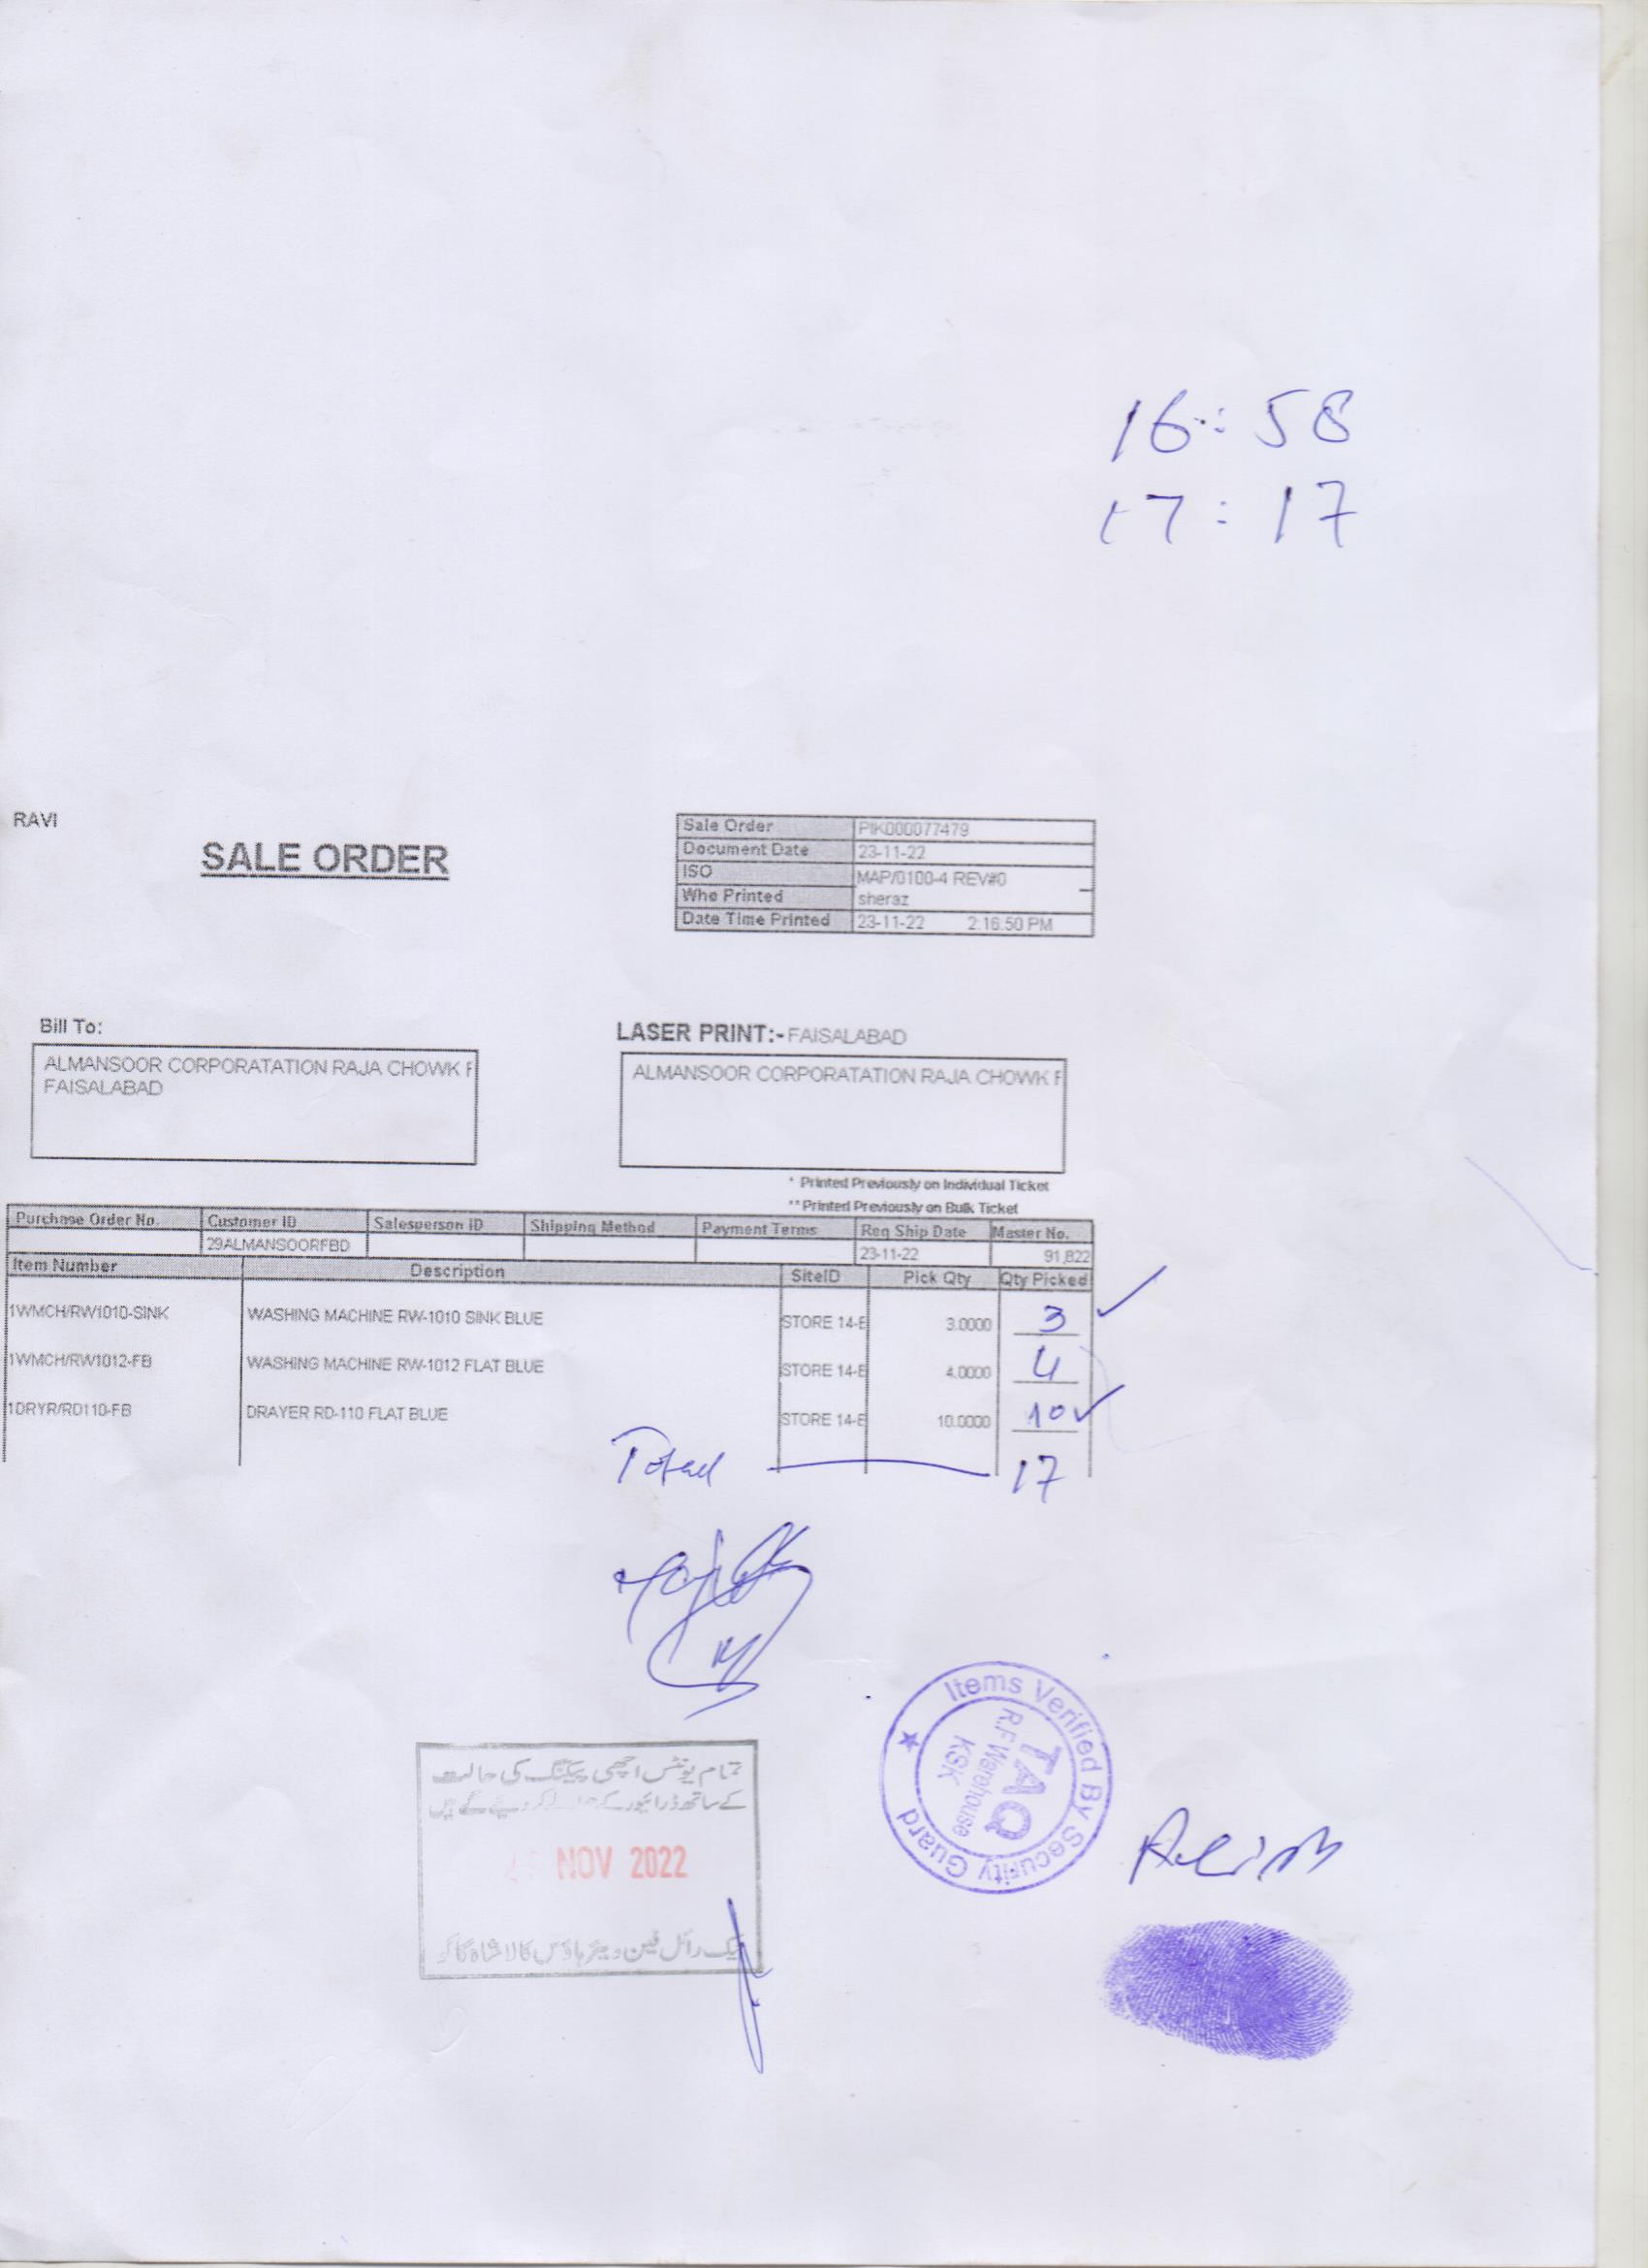 16:58
17:17
RAVI
SALE ORDER
Sale Order PIK000077479
Document Date 23-11-22
ISO MAP/0100-4 REV#0
Who Printed sheraz
Date Time Printed 23-11-22 2:16:50 PM
Bill To:
ALMANSOOR CORPORATATION RAJA CHOWK F
FAISALABAD
LASER PRINT:- FAISALABAD
ALMANSOOR CORPORATATION RAJA CHOWK F
* Printed Previously on Individual Ticket
** Printed Previously on Bulk Ticket
Purchase Order No. Customer ID Salesperson ID Shipping Method Payment Terms Req Ship Date Master No.
29ALMANSOORFBD 23-11-22 91,822
Item Number Description SiteID Pick Qty Qty Picked
1WMCH/RW1010-SINK WASHING MACHINE RW-1010 SINK BLUE STORE 14-E 3.0000 3
1WMCH/RW1012-FB WASHING MACHINE RW-1012 FLAT BLUE STORE 14-E 4.0000 4
1DRYR/RD110-FB DRAYER RD-110 FLAT BLUE STORE 14-E 10.0000 10
Total 17
تمام یونٹس اچھی پیکنگ کی حالت
کے ساتھ ڈرائیور کے کر دیئے گئے ہیں
NOV 2022
ٹیک رائل فین ویئر ہاؤس کالا شاہ کاکو
Items Verified By Security Guard
TAQ
R.F Warehouse
KSK